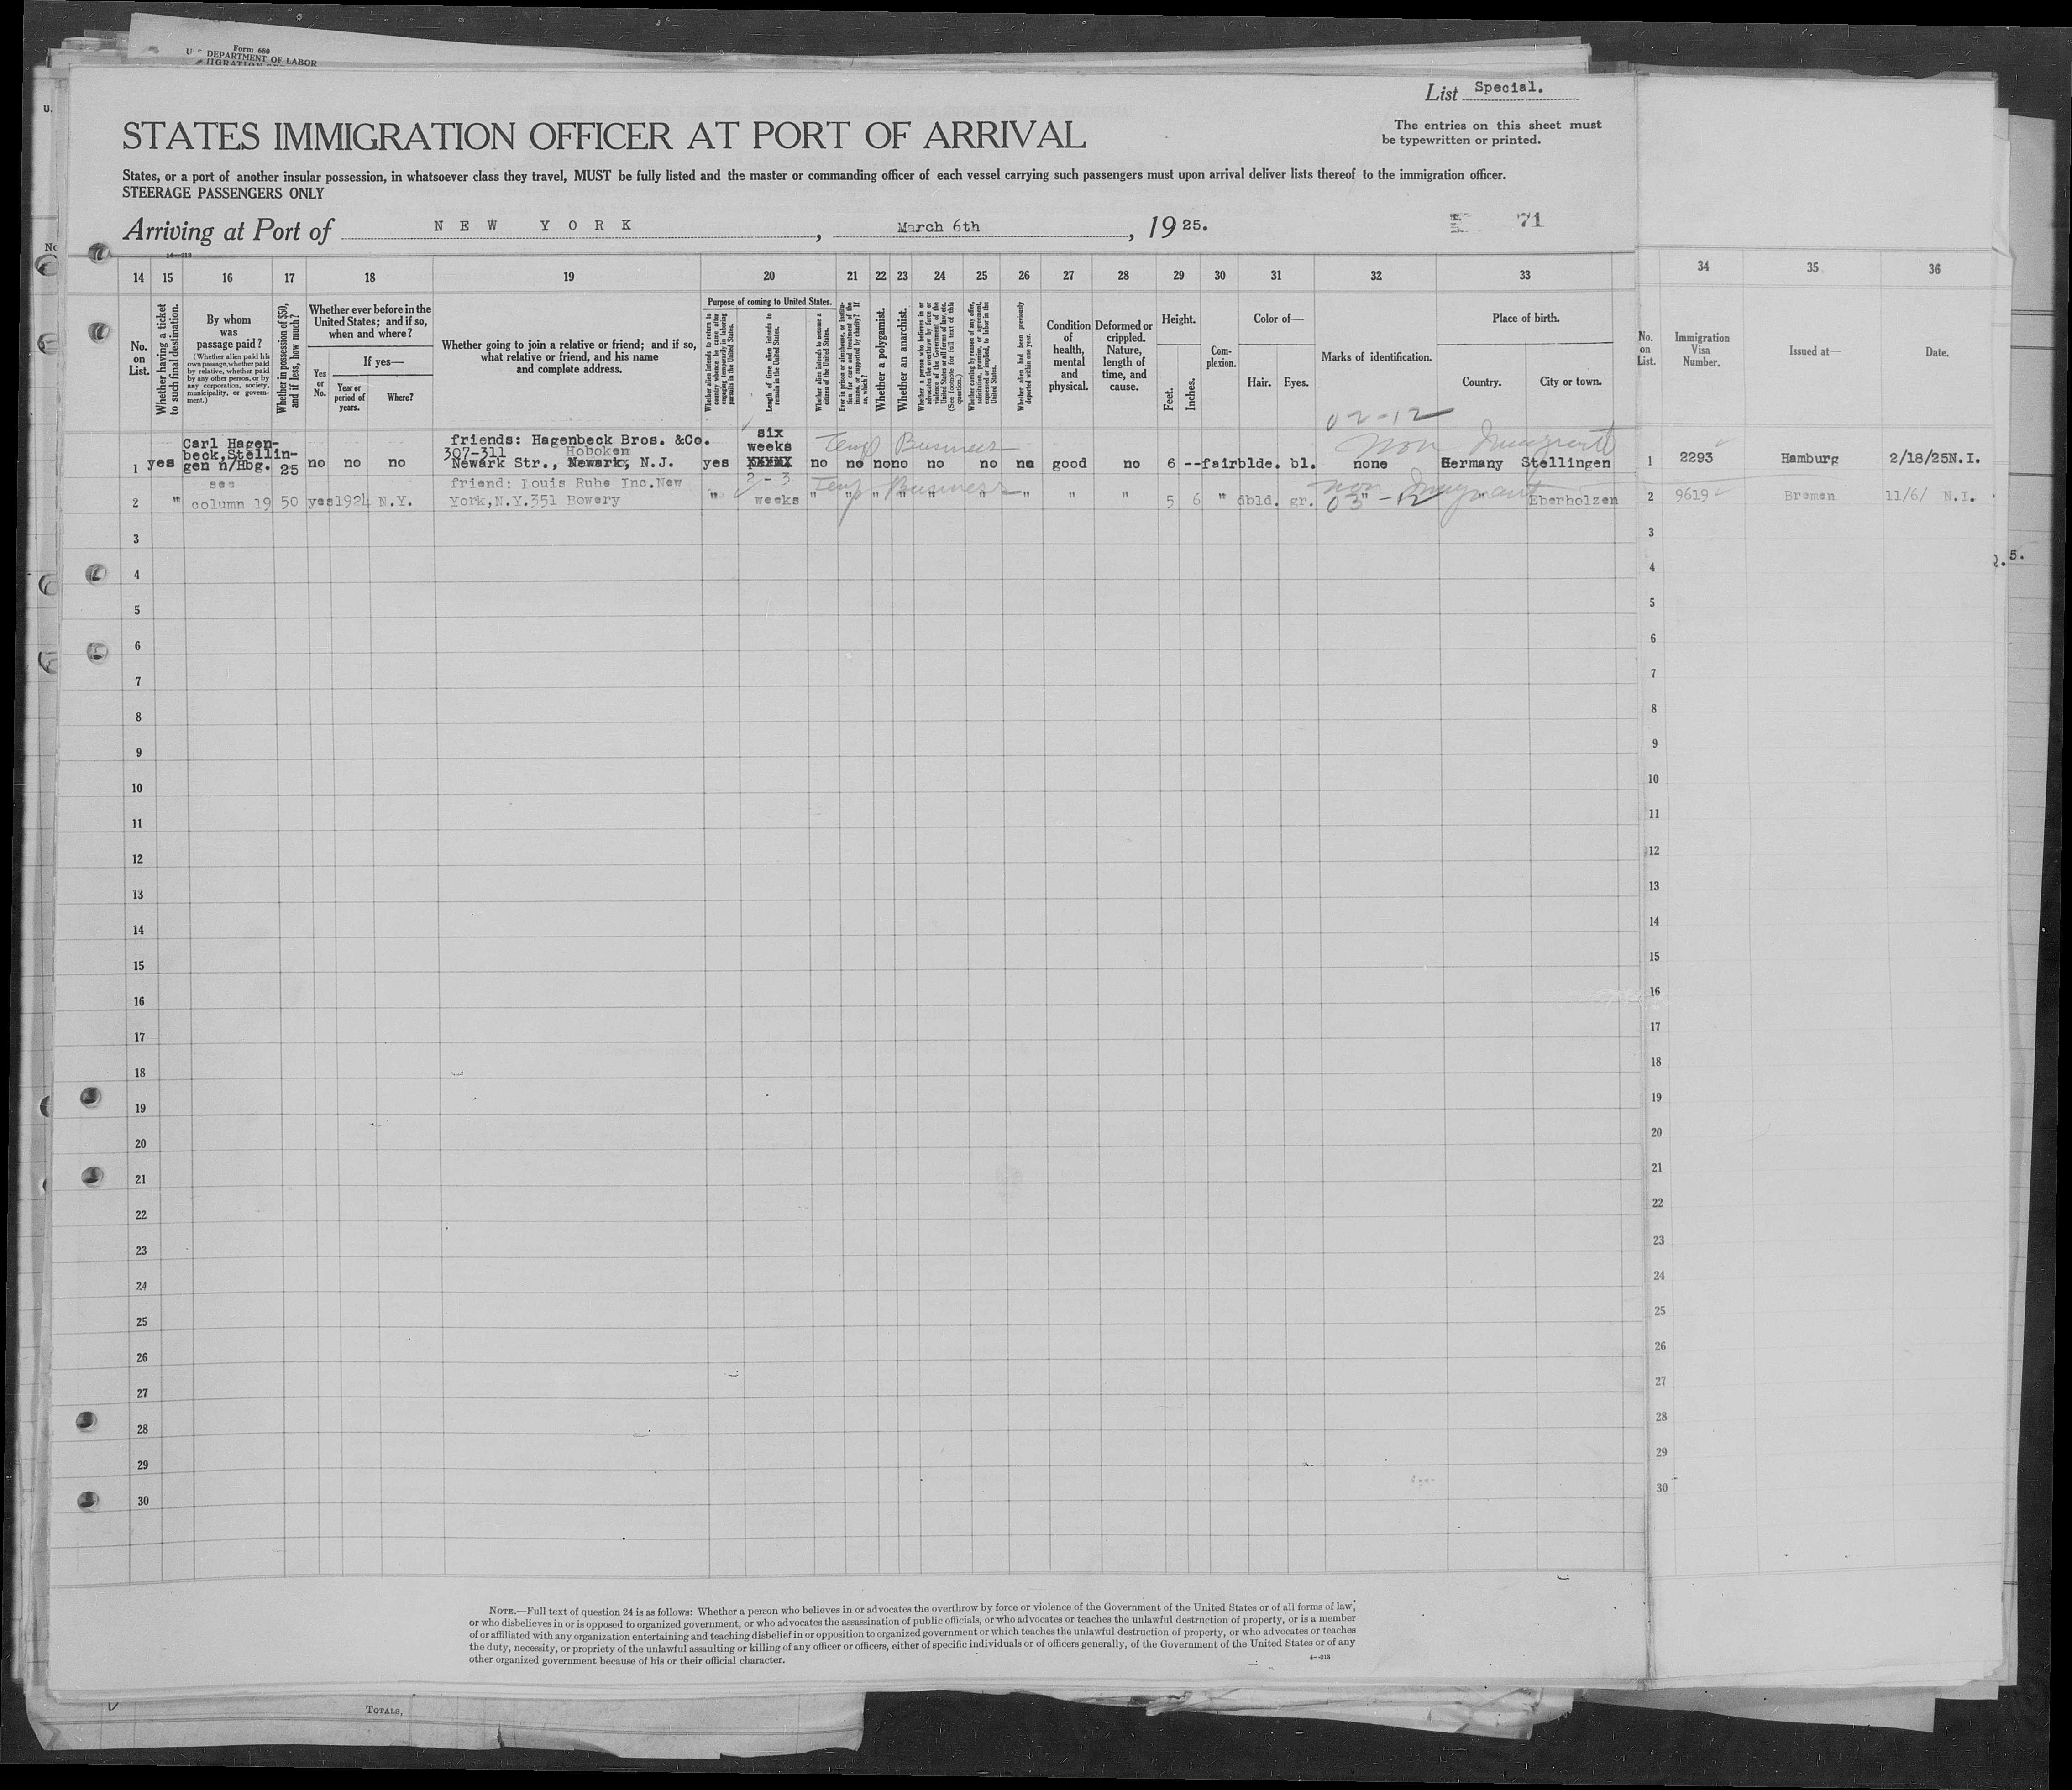 Form 680
U. S. DEPARTMENT OF LABOR
List Special.
STATES IMMIGRATION OFFICER AT PORT OF ARRIVAL
The entries on this sheet must
be typewritten or printed.
States, or a port of another insular possession, in whatsoever class they travel, MUST be fully listed and the master or commanding officer of each vessel carrying such passengers must upon arrival deliver lists thereof to the immigration officer.
STEERAGE PASSENGERS ONLY
Arriving at Port of NEW YORK, March 6th, 1925.
71
14—213
14 15 16 17 18 19 20 21 22 23 24 25 26 27 28 29 30 31 32 33 34 35 36
No. on List.
Whether having a ticket to such final destination.
By whom was passage paid?
(Whether alien paid his own passage, whether paid by relative, whether paid by any other person, or by any corporation, society, municipality, or government.)
Whether in possession of $50, and if less, how much?
Whether ever before in the United States; and if so, when and where?
Yes or No.
If yes—
Year or period of years.
Where?
Whether going to join a relative or friend; and if so, what relative or friend, and his name and complete address.
Purpose of coming to United States.
Whether alien intends to return to country whence he came after engaging temporarily in laboring pursuits in the United States.
Length of time alien intends to remain in the United States.
Whether alien intends to become a citizen of the United States.
Ever in prison or almshouse, or institution for care and treatment of the insane, or supported by charity? If so, which?
Whether a polygamist.
Whether an anarchist.
Whether a person who believes in or advocates the overthrow by force or violence of the Government of the United States or all forms of law, etc. (See footnote for full text of this question.)
Whether coming by reason of any offer, solicitation, promise, or agreement, expressed or implied, to labor in the United States.
Whether alien had been previously deported within one year.
Condition of health, mental and physical.
Deformed or crippled. Nature, length of time, and cause.
Height.
Feet.
Inches.
Complexion.
Color of—
Hair.
Eyes.
Marks of identification.
Place of birth.
Country.
City or town.
No. on List.
Immigration Visa Number.
Issued at—
Date.
02-12
Temp Business
Non Immigrant
1 yes Carl Hagen-
beck, Stellin-
gen n/Hbg. 25 no no no friends: Hagenbeck Bros. &Co.
307-311 Hoboken
Newark Str., Newark, N.J. yes six
weeks
xxxxx no no no no no no no good no 6 -- fair blde. bl. none Germany Stellingen 1 2293 Hamburg 2/18/25 N.I.
Temp Business
non Immigrant
03 - 12
2 " see
column 19 50 yes 1924 N.Y. friend: Louis Ruhe Inc. New
York, N.Y. 351 Bowery " 2 - 3
weeks " " " " " " " " " 5 6 " dbld. gr. " " Eberholzen 2 9619 Bremen 11/6/ N.I.
5.
3 3
4 4
5 5
6 6
7 7
8 8
9 9
10 10
11 11
12 12
13 13
14 14
15 15
16 16
17 17
18 18
19 19
20 20
21 21
22 22
23 23
24 24
25 25
26 26
27 27
28 28
29 29
30 30
NOTE.—Full text of question 24 is as follows: Whether a person who believes in or advocates the overthrow by force or violence of the Government of the United States or of all forms of law,
or who disbelieves in or is opposed to organized government, or who advocates the assassination of public officials, or who advocates or teaches the unlawful destruction of property, or is a member
of or affiliated with any organization entertaining and teaching disbelief in or opposition to organized government or which teaches the unlawful destruction of property, or who advocates or teaches
the duty, necessity, or propriety of the unlawful assaulting or killing of any officer or officers, either of specific individuals or of officers generally, of the Government of the United States or of any
other organized government because of his or their official character.
TOTALS,